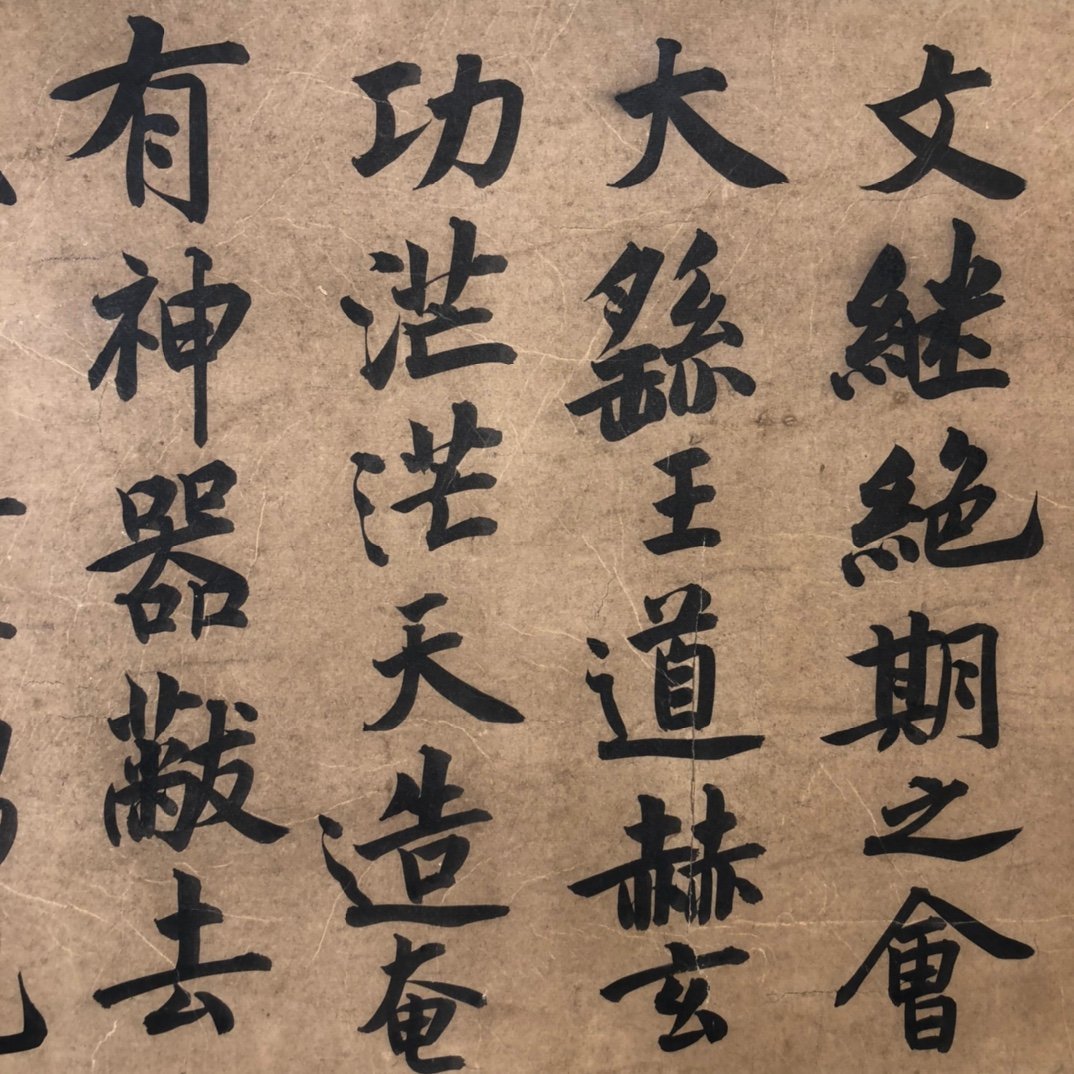 文継絶期之會
大繇王道赫玄
功茫茫天造奄
有神器黻去